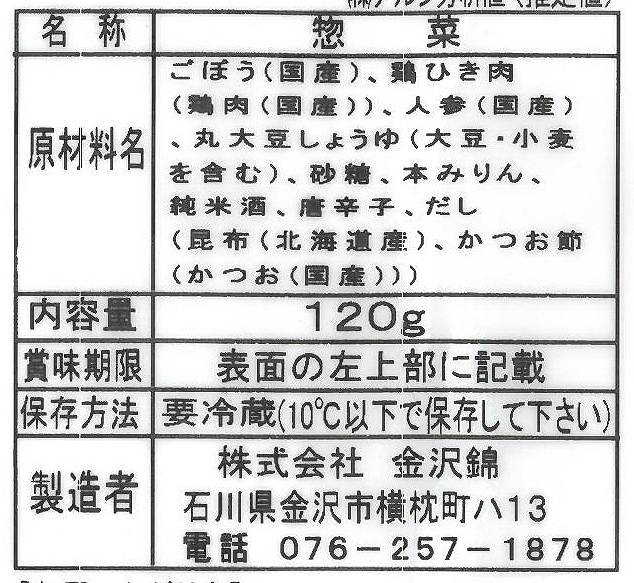 名称 惣菜
原材料名 ごぼう(国産)、鶏ひき肉
(鶏肉(国産))、人参(国産)
、丸大豆しょうゆ(大豆・小麦
を含む)、砂糖、本みりん、
純米酒、唐辛子、だし
(昆布(北海道産)、かつお節
(かつお(国産)))
内容量 120g
賞味期限 表面の左上部に記載
保存方法 要冷蔵(10℃以下で保存して下さい)
製造者 株式会社 金沢錦
石川県金沢市横枕町ハ13
電話 076-257-1878